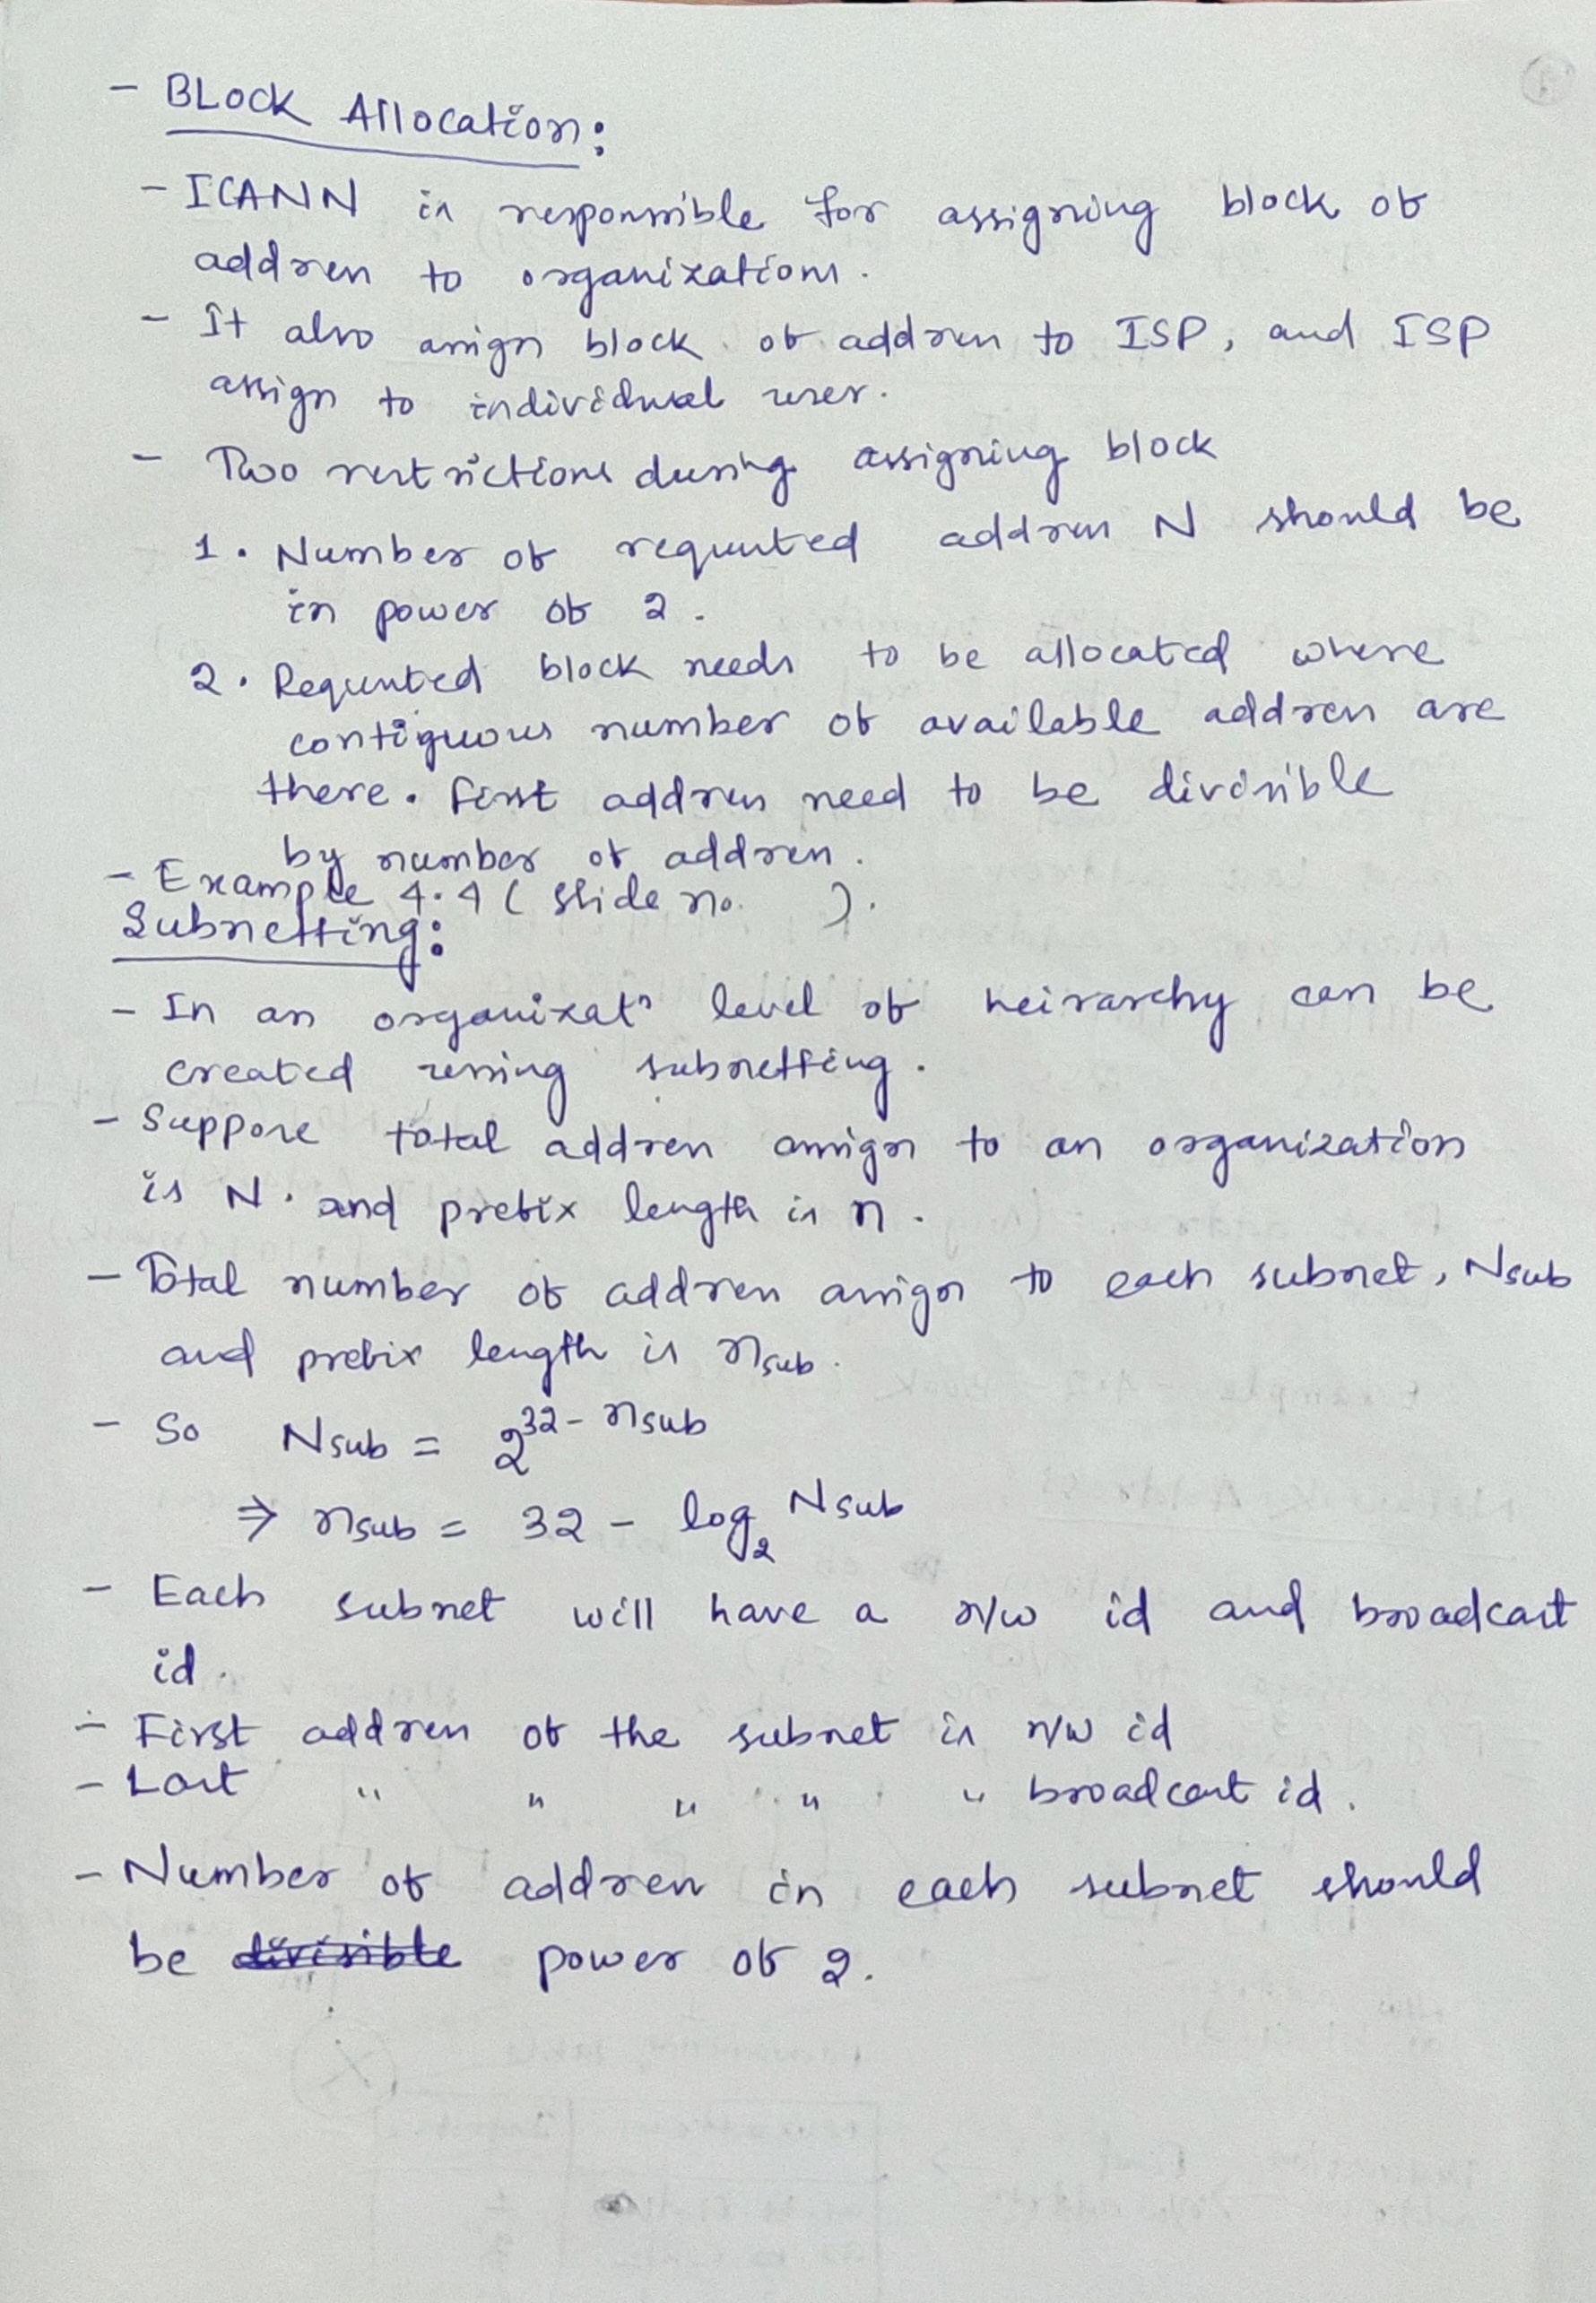 - BLock Allocation:
- ICANN is responsible for assigning block of
address to organizations.
- It also assign block of address to ISP, and ISP
assign to individual user.
- Two restrictions during assigning block
1. Number of requested address N should be
in power of 2.
2. Requested block needs to be allocated where
contiguous number of available address are
there. First address need to be divisible
by number of address.
- Example 4.4 (slide no. ).
Subnetting:
- In an organizatn level of heirarchy can be
created using subnetting.
- Suppose total address assign to an organization
is N. and prefix length is n.
- Total number of address assign to each subnet, Nsub
and prefix length is nsub.
- So Nsub = 2^32-nsub
⇒ nsub = 32 - log2 Nsub
- Each subnet will have a n/w id and broadcast
id.
- First address of the subnet is n/w id
- Last " " " " " broadcast id.
- Number of address in each subnet should
be divisible power of 2.